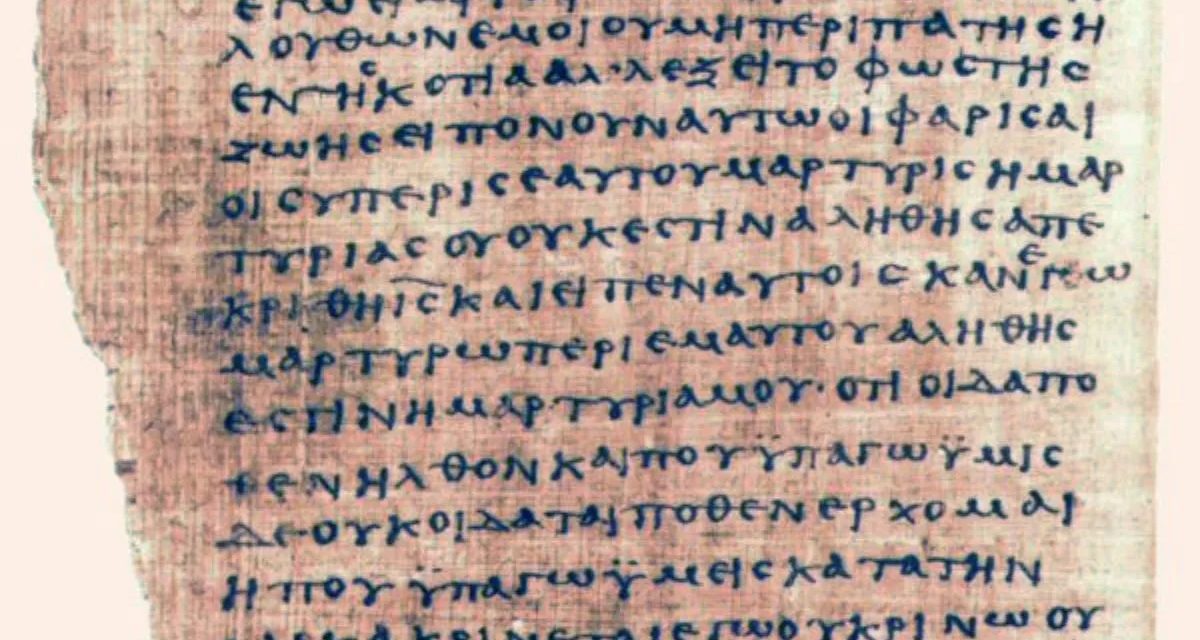 λουθωνεμοιουμηπεριπατηϲη
εντηϲκοτιααλ·λεξειτοφωϲτηϲ
ζωηϲειπονουναυτωοιφαριϲαι
οιϲυπεριϲεαυτουμαρτυριϲημαρ
τυριαϲουουκεϲτιναληθηϲαπε
κριθηι̅ϲ̅καιειπεναυτοιϲκανεγω
μαρτυρωπεριεμαυτουαληθηϲ
εϲτινημαρτυριαμου·οτιοιδαπο
θενηλθονκαιπουϋπαγωϋμιϲ
δεουκοιδαταιποθενερχομαι
ηπουϋπαγωϋμειϲκατατην
κρινεταιεγωουκρινωου